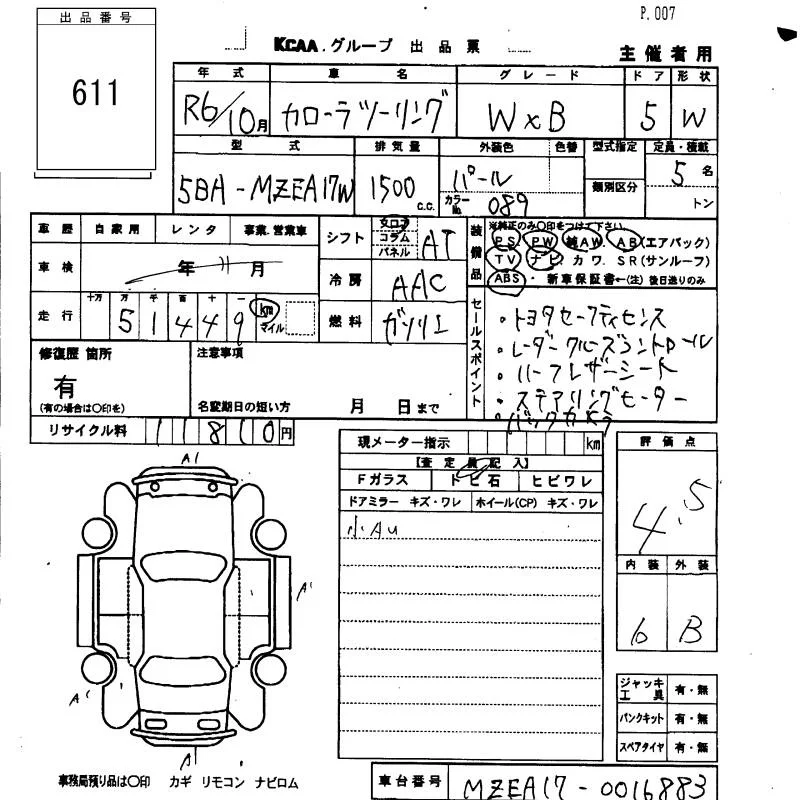 P.007
出品番号
611
KCAA.グループ 出品票
主催者用
年式 車名 グレード ドア 形状
R6/10月 カローラツーリング W×B 5 W
型式 排気量 外装色 色替 型式指定 定員・積載
5BA-MZEA17W 1500c.c. パール カラーNo. 089 類別区分 5名 トン
車歴 自家用 レンタ 事業.営業車
車検 年 11月
走行 十万 万 千 百 十 一
51449 km マイル
シフト フロア コラム パネル AT
冷房 AAC
燃料 ガソリン
装備品
※純正のみ〇印をつけて下さい
PS PW 純AW AB(エアバック)
TV ナビ カワ SR(サンルーフ)
ABS・新車保証書←(注)後日送りのみ
セールスポイント
・トヨタセーフティセンス
・レーダークルーズコントロール
・ハーフレザーシート
・ステアリングヒーター
・バックカメラ
修復歴 箇所
有
(有の場合は〇印を)
注意事項
名変期日の短い方 月 日まで
リサイクル料 11810円
現メーター指示 km
【査定員記入】
Fガラス トビ石 ヒビワレ
ドアミラー キズ・ワレ ホイール(CP) キズ・ワレ
小AU
評価点
4.5
内装 外装
6 B
ジャッキ工具 有・無
パンクキット 有・無
スペアタイヤ 有・無
A1
A'
A'
A'
A1
事務局預り品は〇印 カギ リモコン ナビロム
車台番号 MZEA17-0016883